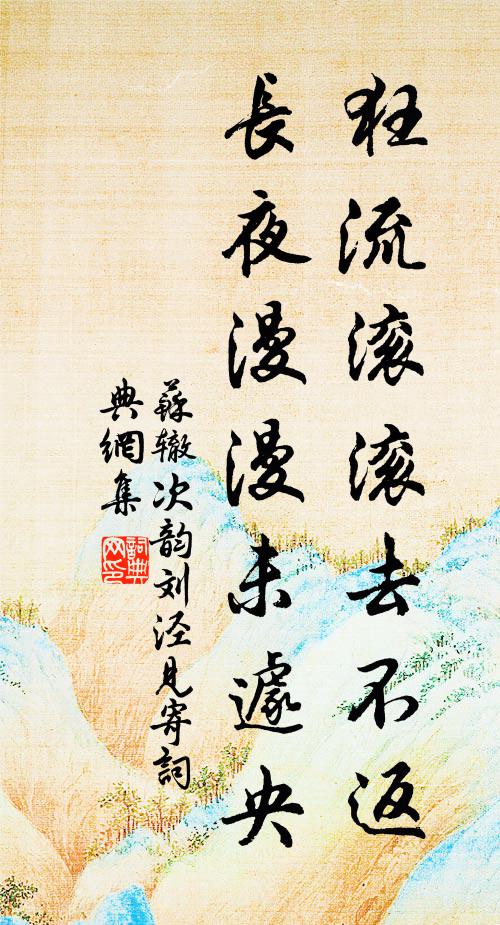 狂流滚滚去不返
長夜漫漫未遽央
蘇辙次韵刘泾见寄詞
典網集
詞典
网印